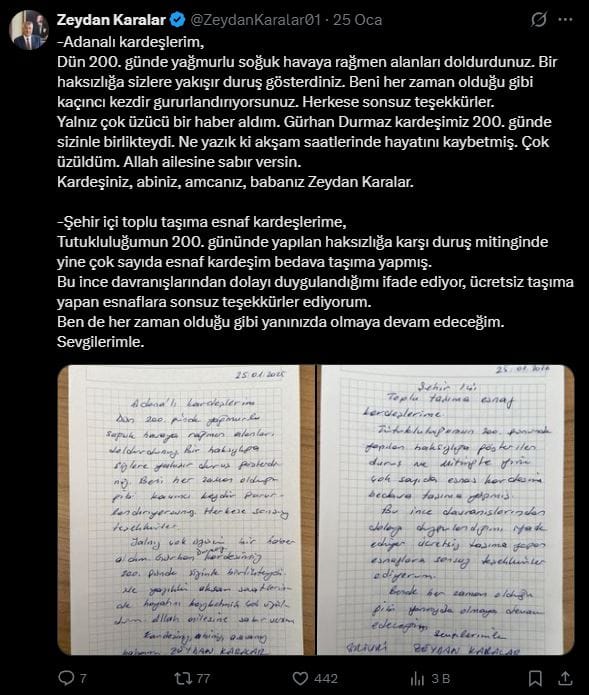 Zeydan Karalar @ZeydanKaralar01 · 25 Oca
-Adanalı kardeşlerim,
Dün 200. günde yağmurlu soğuk havaya rağmen alanları doldurdunuz. Bir
haksızlığa sizlere yakışır duruş gösterdiniz. Beni her zaman olduğu gibi
kaçıncı kezdir gururlandırıyorsunuz. Herkese sonsuz teşekkürler.
Yalnız çok üzücü bir haber aldım. Gürhan Durmaz kardeşimiz 200. günde
sizinle birlikteydi. Ne yazık ki akşam saatlerinde hayatını kaybetmiş. Çok
üzüldüm. Allah ailesine sabır versin.
Kardeşiniz, abiniz, amcanız, babanız Zeydan Karalar.
-Şehir içi toplu taşıma esnaf kardeşlerime,
Tutukluluğumun 200. gününde yapılan haksızlığa karşı duruş mitinginde
yine çok sayıda esnaf kardeşim bedava taşıma yapmış.
Bu ince davranışlarından dolayı duygulandığımı ifade ediyor, ücretsiz taşıma
yapan esnaflara sonsuz teşekkürler ediyorum.
Ben de her zaman olduğu gibi yanınızda olmaya devam edeceğim.
Sevgilerimle.
25.01.2026
Adana'lı kardeşlerim
Dün 200. günde yağmurlu
soğuk havaya rağmen alanları
doldurdunuz. Bir haksızlığa
sizlere yakışır duruş gösterdi
niz. Beni her zaman olduğu
gibi kaçıncı kezdir gurur-
landırıyorsunuz. Herkese sonsuz
teşekkürler.
Yalnız çok üzücü bir haber
aldım. Gürhan Durmaz kardeşimiz
200. günde sizinle birlikteydi.
Ne yazıkki akşam saatlerin
de hayatını kaybetmiş. Çok üzül
düm. Allah ailesine sabır versin
Kardeşiniz, abiniz, amcanız
babanız ZEYDAN KARALAR
25.01.2026
Şehir içi
Toplu taşıma esnaf
kardeşlerime.
Tutukluluğumun 200. gününde
yapılan haksızlığa gösterilen
duruş ve mitingte yine
çok sayıda esnaf kardeşim
bedava taşıma yapmış.
Bu ince davranışlarından
dolayı duygulandığımı ifade
ediyor ücretsiz taşıma yapan
esnaflara sonsuz teşekkürler
ediyorum.
Bende her zaman olduğu
gibi yanınızda olmaya devam
edeceğim.
sevgilerimle
ZEYDAN KARALAR
7 77 442 3 B